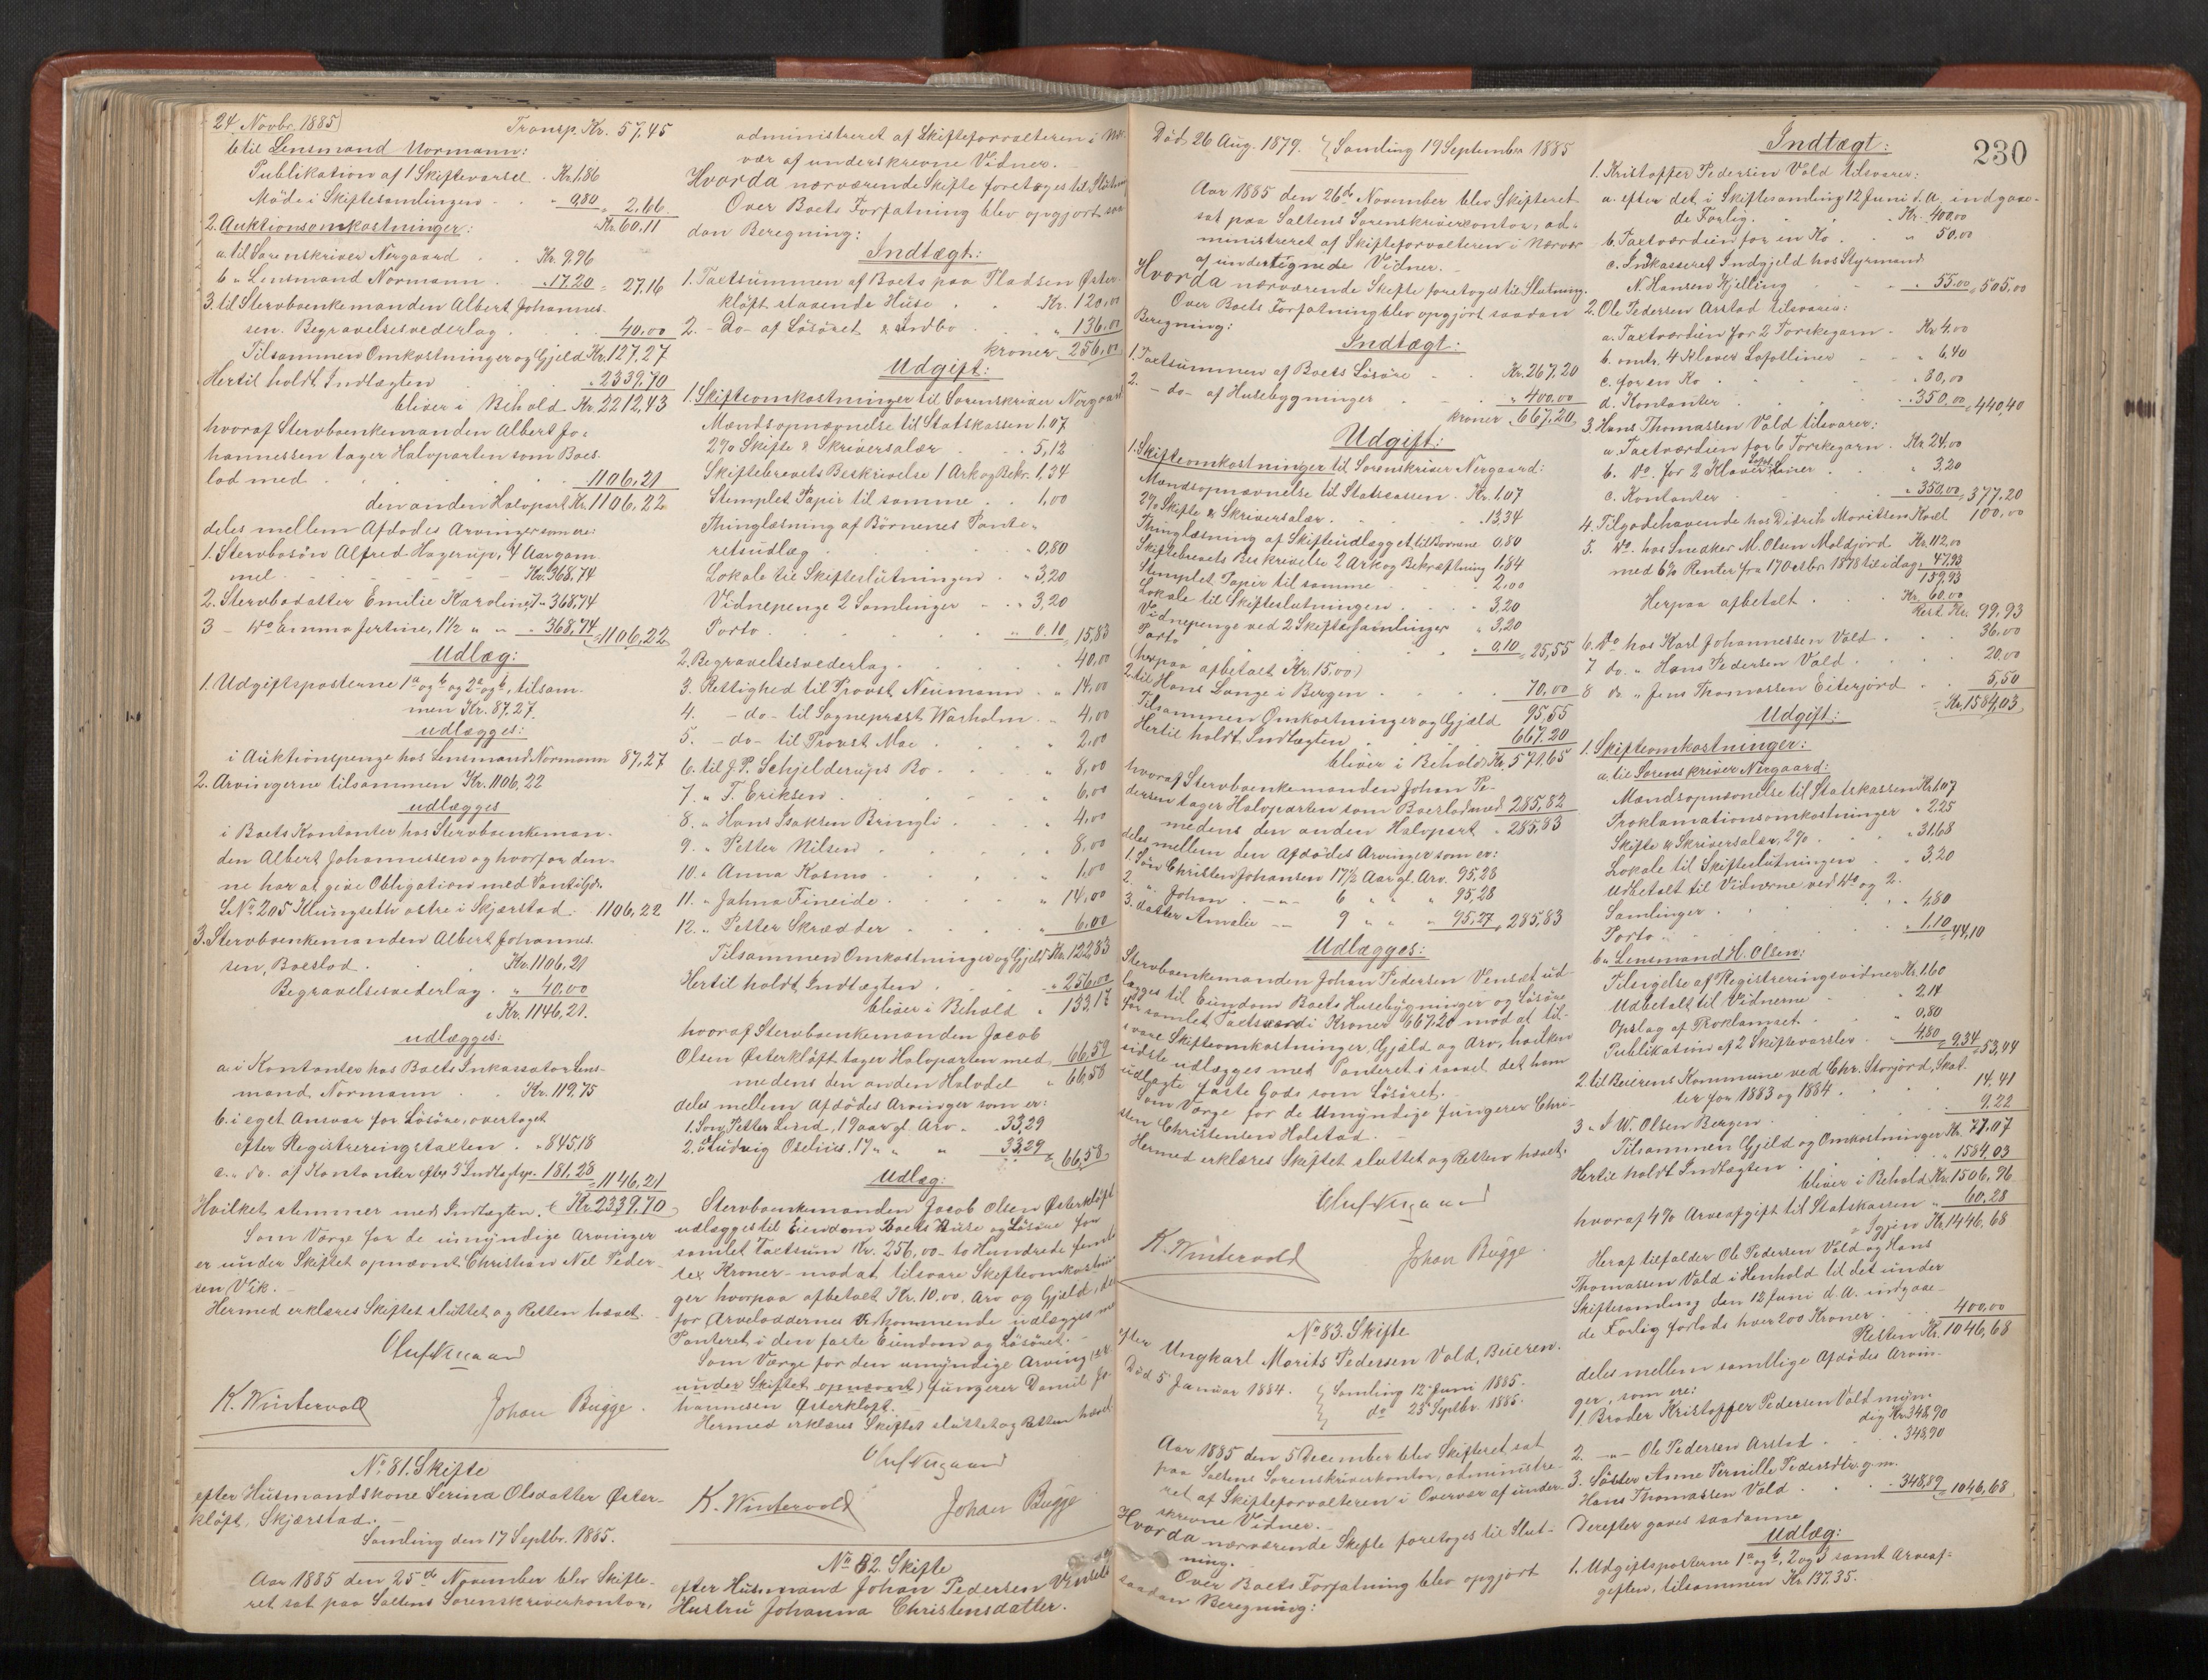 24 Novbr. 1885
Transp. Kr. 57,45
b til Lensmand Normann:
Publikation af 1 Skiftevarsel . Kr. 1,86
Möde i Skiftesamlingen . . " 0,80 = 2,66.
Kr. 60,11
2. Auktionsomkostninger:
a. til Sorenskriver Nergaard . . Kr. 9,96
b " Lensmand Normann . " 17,20 = 27,16
3. til Stervboenkemanden Albert Johannes-
sen. Begravelsesvederlag . . . 40,00
Tilsammen Omkostninger og Gjeld Kr. 127,27
Hertil holdt Indtægten . . . " 2339,70
bliver i Behold Kr. 2212,43
hvoraf Stervboenkemanden Albert Jo-
hannessen tager Halvparten som Boes-
lod med . . . . . 1106,21
den anden Halvpart Kr. 1106,22
deles mellem Afdödes Arvinger som ere:
1. Stervbosön Alfred Hagerup, 4 Aar gam-
mel - - - - - Kr. 368,74
2. Stervbodatter Emilie Karoline, 7 " 368,74
3 - do Emma Jertine, 1½ " " " 368,74 = 1106,22
Udlæg:
1. Udgiftsposterne 1a og b og 2a og b, tilsam-
men Kr. 87,27.
udlægges:
i Auktionspenge hos Lensmand Normann 87,27
2. Arvingerne tilsammen Kr. 1106,22
udlægges
i Boets Kontanter hos Stervboenkeman-
den Albert Johannessen og hvorfor den-
ne har at give Obligation med Pant i Gdr.
L.No. 205 Klungseth østre i Skjærstad . 1106,22
3. Stervboenkemanden Albert Johannes-
sen, Boeslod . . Kr. 1106,21
Begravelsesvederlag . " 40,00
Kr. 1146,21.
udlægges:
a. i Kontanter hos Boets Inkassator Lens-
mand Normann . . Kr. 119,75
b. i eget Ansvar for Lösöre, overtaget
efter Registreringstaxten . " 845,18
c. " do. af Kontanter efter 3 Indtægtsp. 181,28 = 1146,21
Hvilket stemmer med Indtægten. Kr. 2339,70
Som Værge for de umyndige Arvinger
er under Skiftet opnævnt Christian Nel Peder-
sen Vik.
Hermed erklæres Skiftet sluttet og Retten hævet.
Oluf Nergaard
K. Wintervold Johan Bugge.
No 81. Skifte
efter Husmandskone Serina Olsdatter Øster-
kløft, Skjærstad. -
Samling den 17 Septbr. 1885.
Aar 1885 den 25de November blev Skifte-
ret sat paa Saltens Sorenskriverkontor,
administreret af Skifteforvalteren i Nær-
vær af underskrevne Vidner.
Hvorda nærværende Skifte foretoges til Slutn.
Over Boets Forfatning blev opgjort saa-
dan Beregning:
Indtægt:
1. Taxtsummen af Boets paa Pladsen Øster-
kløft staaende Huse . . Kr. 120,00
2. - do - af Lösöret & Indbo . . " 136,00
kroner 256,00
Udgift:
1. Skifteomkostninger til Sorenskriver Nergaard
Mandsopnævnelse til Statskassen 1,07
2% Skifte & Skriversalær . . 5,12
Skiftebrevets Beskrivelse 1 Ark og Bekr. 1,34
Stemplet Papir til samme . . 1,00
Thinglæsning af Börnenes Pante-
retsudlæg . . . . " 0,80
Lokale til Skifteslutningen . " 3,20
Vidnepenge 2 Samlinger . . " 3,20
Porto . . . . . " 0,10 = 15,83
2. Begravelsesvederlag . . . . 40,00
3. Rettighed til Provst Neumann . " 14,00
4. - do - til Sognepræst Warholm . " 4,00
5. - do - til Provst Moe . . . " 2,00
6. til J. P. Schjelderups Bo . . . " 8,00
7. " T. Eriksen . . . . " 6,00
8. " Hans Isaksen Bringsli . . . " 4,00
9. " Petter Nilsen . . . . " 8,00
10. " Anna Kosmo . . . . " 1,00
11. " Jahna Fineide . . . . " 14,00
12. " Petter Skrædder . . . . " 6,00
Tilsammen Omkostninger og Gjeld Kr. 122,83
Hertil holdt Indtægten . . " 256,00
bliver i Behold " 133,17
hvoraf Stervboenkemanden Jacob
Olsen Østerkløft tager Halvparten med 66,59
medens den anden Halvdel " 66,58
deles mellem Afdödes Arvinger som er:
1. Sön Petter Lind, 19 aar gl. Arv . 33,29
2. " Ludvig Oselius, 17 " " " 33,29 = 66,58
Udlæg:
Stervboenkemanden Jacob Olsen Østerkløft
udlægges til Eiendom Boets Huse og Lösöre for
samlet Taxtsum Kr. 256,00 - to Hundrede femti
sex Kroner - mod at tilsvare Skifteomkostnin-
ger hvorpaa afbetalt Kr. 10.00. Arv og Gjæld, der
for Arvelodderne Vedkommende udlægges med
Panteret i den faste Eiendom og Lösöret. -
Som Værge for den umyndige Arving (er
under Skiftet opnævnt) fungerer Daniel Jo-
hannesen Østerkløft.
Hermed erklæres Skiftet sluttet og Retten hævet.
Oluf Nergaard
K. Wintervold Johan Bugge
No 82. Skifte
efter Husmand Johan Pedersen Vensets
Hustru Johanna Christensdatter.
230
Död 26 Aug. 1879. Samling 19 September 1885
Aar 1885 den 26de November blev Skifteret
sat paa Saltens Sorenskriverkontor, ad-
ministreret af Skifteforvalteren i Nærvær
af undertegnede Vidner.
Hvorda nærværende Skifte foretoges til Slutning.
Over Boets Forfatning blev opgjort saadan
Beregning:
Indtægt:
1. Taxtsummen af Boets Lösöre . . Kr. 267,20
2. - do - af Husebygninger . . " 400,00
kroner 667,20
Udgift:
1. Skifteomkostninger til Sorenskriver Nergaard:
Mandsopnævnelse til Statskassen . Kr. 1,07
2% Skifte & Skriversalær . . . " 13,34
Thinglæsning af Skifteudlægget til Børnene 0,80
Skiftebrevets Beskrivelse 2 Ark og Bekræftning 1,84
Stemplet Papir til samme . . 2,00
Lokale til Skifteslutningen . . 3,20
Vidnepenge ved 2 Skiftesamlinger " 3,20
Porto . . . . " 0,10 = 25,55
(herpaa afbetalt Kr. 15,00)
2. til Hans Lange i Bergen . . . 70,00
Tilsammen Omkostninger og Gjæld 95,55
Hertil holdt Indtægten . . . 667,20
bliver i Behold Kr. 571,65
hvoraf Stervboenkemanden Johan Pe-
dersen tager Halvparten som Boeslod med 285,82
medens den anden Halvpart " 285,83
deles mellem den Afdödes Arvinger som er:
1. Sön Christen Johansen 17½ Aar gl. Arv. 95,28
2. " Johan - " - 6 " " " 95,28
3. datter Amalie - - 9 " " " 95,27 = 285,83
Udlægges:
Stervboenkemanden Johan Pedersen Venset ud-
lægges til Eiendom Boets Husebygninger og Lösöre
for samlet Taxtværdi Kroner 667,20 mod at til-
svare Skifteomkostninger, Gjæld og Arv, hvilken
sidste udlægges med Panteret i saavel det ham
udlagte faste Gods som Lösöret.
Som Værge for de Umyndige fungerer Chri-
sten Christensen Holstad. -
Hermed erklæres Skiftet sluttet og Retten hævet.
Oluf Nergaard
K. Wintervold Johan Bugge.
No 83. Skifte
efter Ungkarl Morits Pedersen Vold, Beieren.
Död 5 Januar 1884. Samling 12 Juni 1885.
do 23 Septbr. 1885.
Aar 1885 den 5 December blev Skifteret sat
paa Saltens Sorenskriverkontor, administre-
ret af Skifteforvalteren i Overvær af under-
skrevne Vidner.
Hvorda nærværende Skifte foretoges til Slut-
ning.
Over Boets Forfatning blev opgjort
saadan Beregning:
Indtægt:
1. Kristoffer Pedersen Vold tilsvarer:
a. efter det i Skiftesamling 12 Juni d. A. indgaae-
de Forlig. . . . Kr. 400,00
b. Taxtværdien for en Ko . . " 50,00
c. Indkasseret Indgjeld hos Styrmand
N. Hansen Kjelling . . . 55,00 = 505,00
2. Ole Pedersen Arstad tilsvarer:
a. Taxtværdien for 2 Torskegarn . Kr. 4,00
b. omtr. 4 Klaver Lofotliner . . " 6,40
c. for en Ko . . . . " 80,00
d. Kontanter . . . . " 350,00 = 440,40
3. Hans Thomassen Vold tilsvarer:
a. Taxtværdien for 6 Torskegarn . Kr. 24,00
b. do. for 2 Klaver Lofotliner . . " 3,20
c. Kontanter . . . . " 350,00 = 377,20
4. Tilgodehavende hos Didrik Moritsen Kvæl 100,00
5. do. hos Snedker M. Olsen Moldjord Kr. 112,00
med 6% Renter fra 17 Octbr. 1878 til idag 47,93
159,93
Herpaa afbetalt . . Kr. 60,00
Rest Kr. 99,93
6. do hos Karl Johannessen Vold . . 36,00
7 do. " Hans Pedersen Vold . . . 20,00
8 do. " Jens Thomassen Eiterjord . . 5,50
Kr. 1584,03
Udgift:
1. Skifteomkostninger:
a. til Sorenskriver Nergaard:
Mandsopnævnelse til Statskassen Kr. 1,07
Proklamationsomkostninger " 2,25
Skifte & Skriversalær, 2% . . " 31,68
Lokale til Skifteslutningen . . 3,20
Udbetalt til Vidnerne ved do og 2
Samlinger . . . . " 4,80
Porto . . . . . " 1,10 = 44,10
b " Lensmand H. Olsen:
Tilsigelse af Registreringsvidner Kr. 1,60
Udbetalt til Vidnerne . . " 2,14
Opslag af Proklamaet . . " 0,80
Publikation af 2 Skiftevarsler . . 4,80 = 9,34 = 53,44
2. til Beierens Kommune ved Chr. Storjord, Skat-
ter for 1883 og 1884 . . . 14,41
3 " I W. Olsen Bergen . . . 9,22
Tilsammen Gjeld og Omkostninger Kr. 77,07
Hertil holdt Indtægten . . . " 1584,03
bliver i Behold Kr. 1506,96
hvoraf 4% Arveafgift til Statskassen " 60,28
Igjen Kr. 1446,68
Heraf tilfalder Ole Pedersen Vold og Hans
Thomassen Vold i Henhold til det under
Skiftesamling den 12 Juni d. A. indgaae-
de Forlig forlods hver 200 Kroner . . 400,00
Resten Kr. 1046,68
deles mellem samtlige Afdödes Arvin-
ger, som ere:
1. Broder Kristoffer Pedersen Vold myn-
dig Kr. 348,90
2. - " - Ole Pedersen Arstad . . " 348,90
3. Söster Anne Pernille Pedersdtr. g. m.
Hans Thomassen Vold . . . " 348,89 = 1046,68
Derefter gaves saadanne
Udlæg:
1. Udgiftsposterne 1a og b, 2 og 3 samt Arveaf-
giften, tilsammen Kr. 137,35.